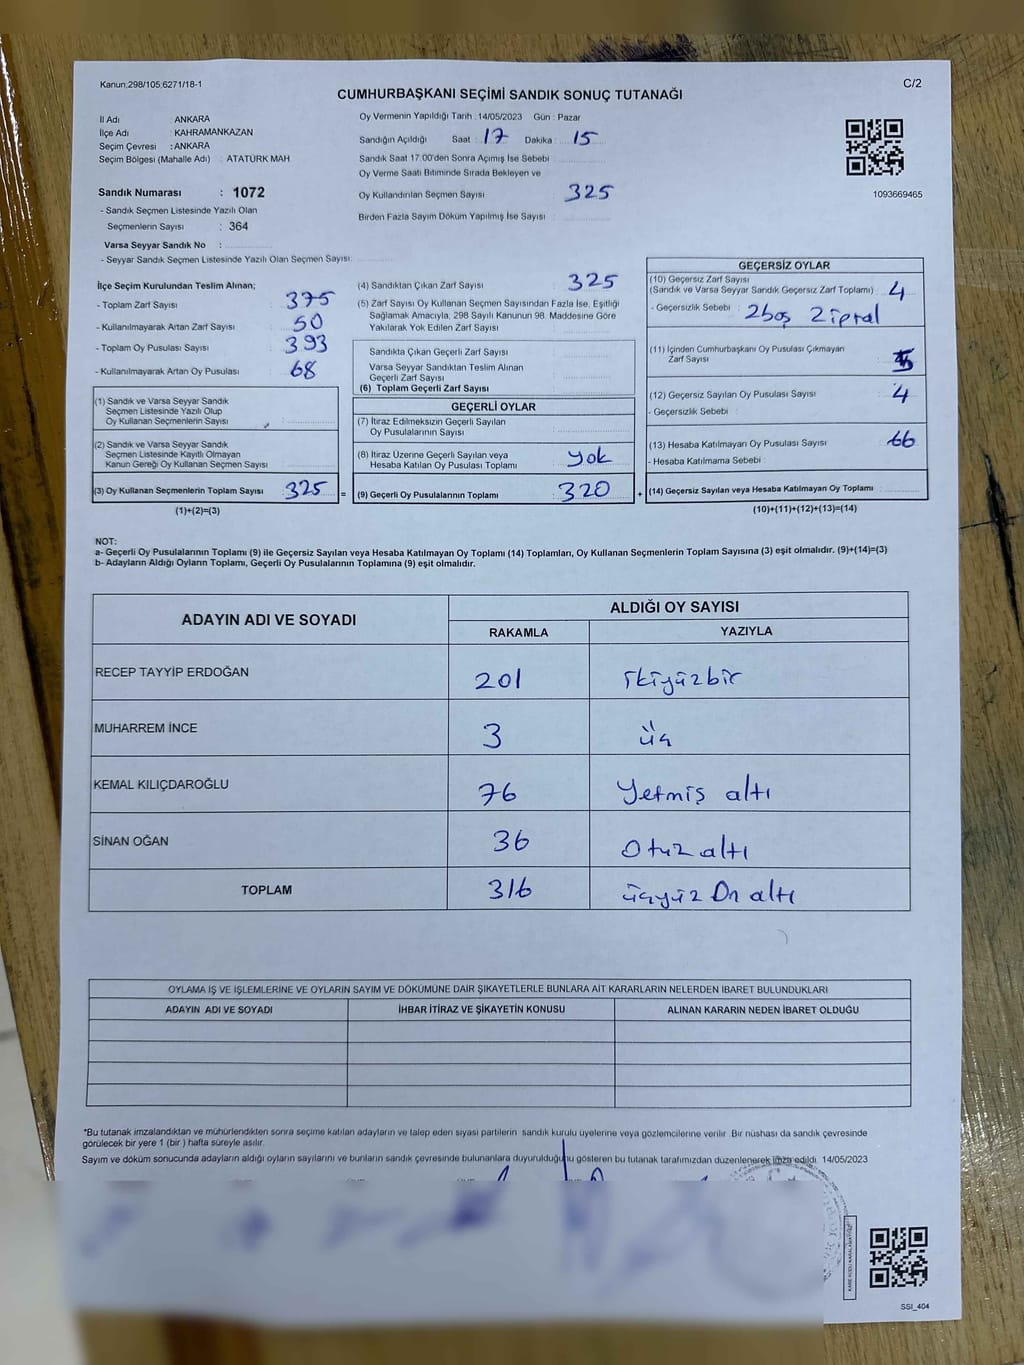 Kanun:298/105;6271/18-1
C/2
CUMHURBAŞKANI SEÇİMİ SANDIK SONUÇ TUTANAĞI
İl Adı : ANKARA
İlçe Adı : KAHRAMANKAZAN
Seçim Çevresi : ANKARA
Seçim Bölgesi (Mahalle Adı) : ATATÜRK MAH
Sandık Numarası : 1072
- Sandık Seçmen Listesinde Yazılı Olan
Seçmenlerin Sayısı : 364
Varsa Seyyar Sandık No :
- Seyyar Sandık Seçmen Listesinde Yazılı Olan Seçmen Sayısı:
Oy Vermenin Yapıldığı Tarih : 14/05/2023 Gün : Pazar
Sandığın Açıldığı Saat : 17 Dakika : 15
Sandık Saat 17:00'den Sonra Açımış İse Sebebi
Oy Verme Saati Bitiminde Sırada Bekleyen ve
Oy Kullandırılan Seçmen Sayısı : 325
Birden Fazla Sayım Döküm Yapılmış İse Sayısı :
1093669465
İlçe Seçim Kurulundan Teslim Alınan;
- Toplam Zarf Sayısı : 375
- Kullanılmayarak Artan Zarf Sayısı : 50
- Toplam Oy Pusulası Sayısı : 393
- Kullanılmayarak Artan Oy Pusulası : 68
(1) Sandık ve Varsa Seyyar Sandık
Seçmen Listesinde Yazılı Olup
Oy Kullanan Seçmenlerin Sayısı :
(2) Sandık ve Varsa Seyyar Sandık
Seçmen Listesinde Kayıtlı Olmayan
Kanun Gereği Oy Kullanan Seçmen Sayısı :
(3) Oy Kullanan Seçmenlerin Toplam Sayısı : 325 =
(1)+(2)=(3)
(4) Sandıktan Çıkan Zarf Sayısı : 325
(5) Zarf Sayısı Oy Kullanan Seçmen Sayısından Fazla İse, Eşitliği
Sağlamak Amacıyla, 298 Sayılı Kanunun 98. Maddesine Göre
Yakılarak Yok Edilen Zarf Sayısı :
Sandıkta Çıkan Geçerli Zarf Sayısı :
Varsa Seyyar Sandıktan Teslim Alınan
Geçerli Zarf Sayısı :
(6) Toplam Geçerli Zarf Sayısı :
GEÇERLİ OYLAR
(7) İtiraz Edilmeksizin Geçerli Sayılan
Oy Pusulalarının Sayısı :
(8) İtiraz Üzerine Geçerli Sayılan veya
Hesaba Katılan Oy Pusulası Toplamı : yok
(9) Geçerli Oy Pusulalarının Toplamı : 320 +
GEÇERSİZ OYLAR
(10) Geçersiz Zarf Sayısı
(Sandık ve Varsa Seyyar Sandık Geçersiz Zarf Toplamı) : 4
- Geçersizlik Sebebi : 2boş 2iptal
(11) İçinden Cumhurbaşkanı Oy Pusulası Çıkmayan
Zarf Sayısı
(12) Geçersiz Sayılan Oy Pusulası Sayısı : 4
- Geçersizlik Sebebi :
(13) Hesaba Katılmayan Oy Pusulası Sayısı : 66
- Hesaba Katılmama Sebebi :
(14) Geçersiz Sayılan veya Hesaba Katılmayan Oy Toplamı :
(10)+(11)+(12)+(13)=(14)
NOT:
a- Geçerli Oy Pusulalarının Toplamı (9) ile Geçersiz Sayılan veya Hesaba Katılmayan Oy Toplamı (14) Toplamları, Oy Kullanan Seçmenlerin Toplam Sayısına (3) eşit olmalıdır. (9)+(14)=(3)
b- Adayların Aldığı Oyların Toplamı, Geçerli Oy Pusulalarının Toplamına (9) eşit olmalıdır.
ADAYIN ADI VE SOYADI
ALDIĞI OY SAYISI
RAKAMLA YAZIYLA
RECEP TAYYİP ERDOĞAN 201 ikiyüzbir
MUHARREM İNCE 3 üç
KEMAL KILIÇDAROĞLU 76 Yetmiş altı
SİNAN OĞAN 36 Otuz altı
TOPLAM 316 üçyüz On altı
OYLAMA İŞ VE İŞLEMLERİNE VE OYLARIN SAYIM VE DÖKÜMÜNE DAİR ŞİKAYETLERLE BUNLARA AİT KARARLARIN NELERDEN İBARET BULUNDUKLARI
ADAYIN ADI VE SOYADI İHBAR İTİRAZ VE ŞİKAYETİN KONUSU ALINAN KARARIN NEDEN İBARET OLDUĞU
*Bu tutanak imzalandıktan ve mühürlendikten sonra seçime katılan adayların ve talep eden siyasi partilerin sandık kurulu üyelerine veya gözlemcilerine verilir. Bir nüshası da sandık çevresinde
görülecek bir yere 1 (bir ) hafta süreyle asılır.
Sayım ve döküm sonucunda adayların aldığı oyların sayılarını ve bunların sandık çevresinde bulunanlara duyurulduğunu gösteren bu tutanak tarafımızdan düzenlenerek imza edildi. 14/05/2023
SSI_404